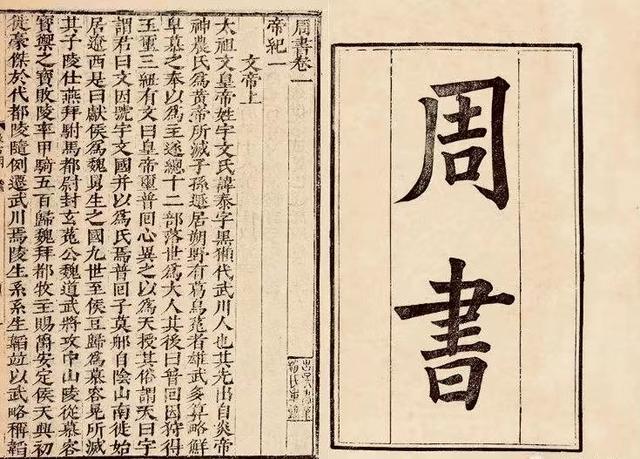 周書
周書卷一
帝紀一
文帝上
太祖文皇帝姓宇文氏諱泰字黑獺代武川人也其先出自炎帝
神農氏爲黃帝所滅子孫遯居朔野有葛烏菟者雄武多算略鮮
卑慕之奉以爲主遂總十二部落世爲大人其後曰普回因狩得
玉璽三紐有文曰皇帝璽普回心異之以爲天授其俗謂天曰宇
謂君曰文因號宇文國并以爲氏焉普回子莫那自陰山南徙始
居遼西是曰獻侯爲魏舅生之國九世至侯豆歸爲慕容晃所滅
其子陵仕燕拜駙馬都尉封玄菟公魏道武將攻中山陵從慕容
寶禦之寶敗陵率甲騎五百歸魏拜都牧主賜爵安定侯天興初
徙豪傑於代都陵隨例遷武川焉陵生系系生韜並以武略稱韜